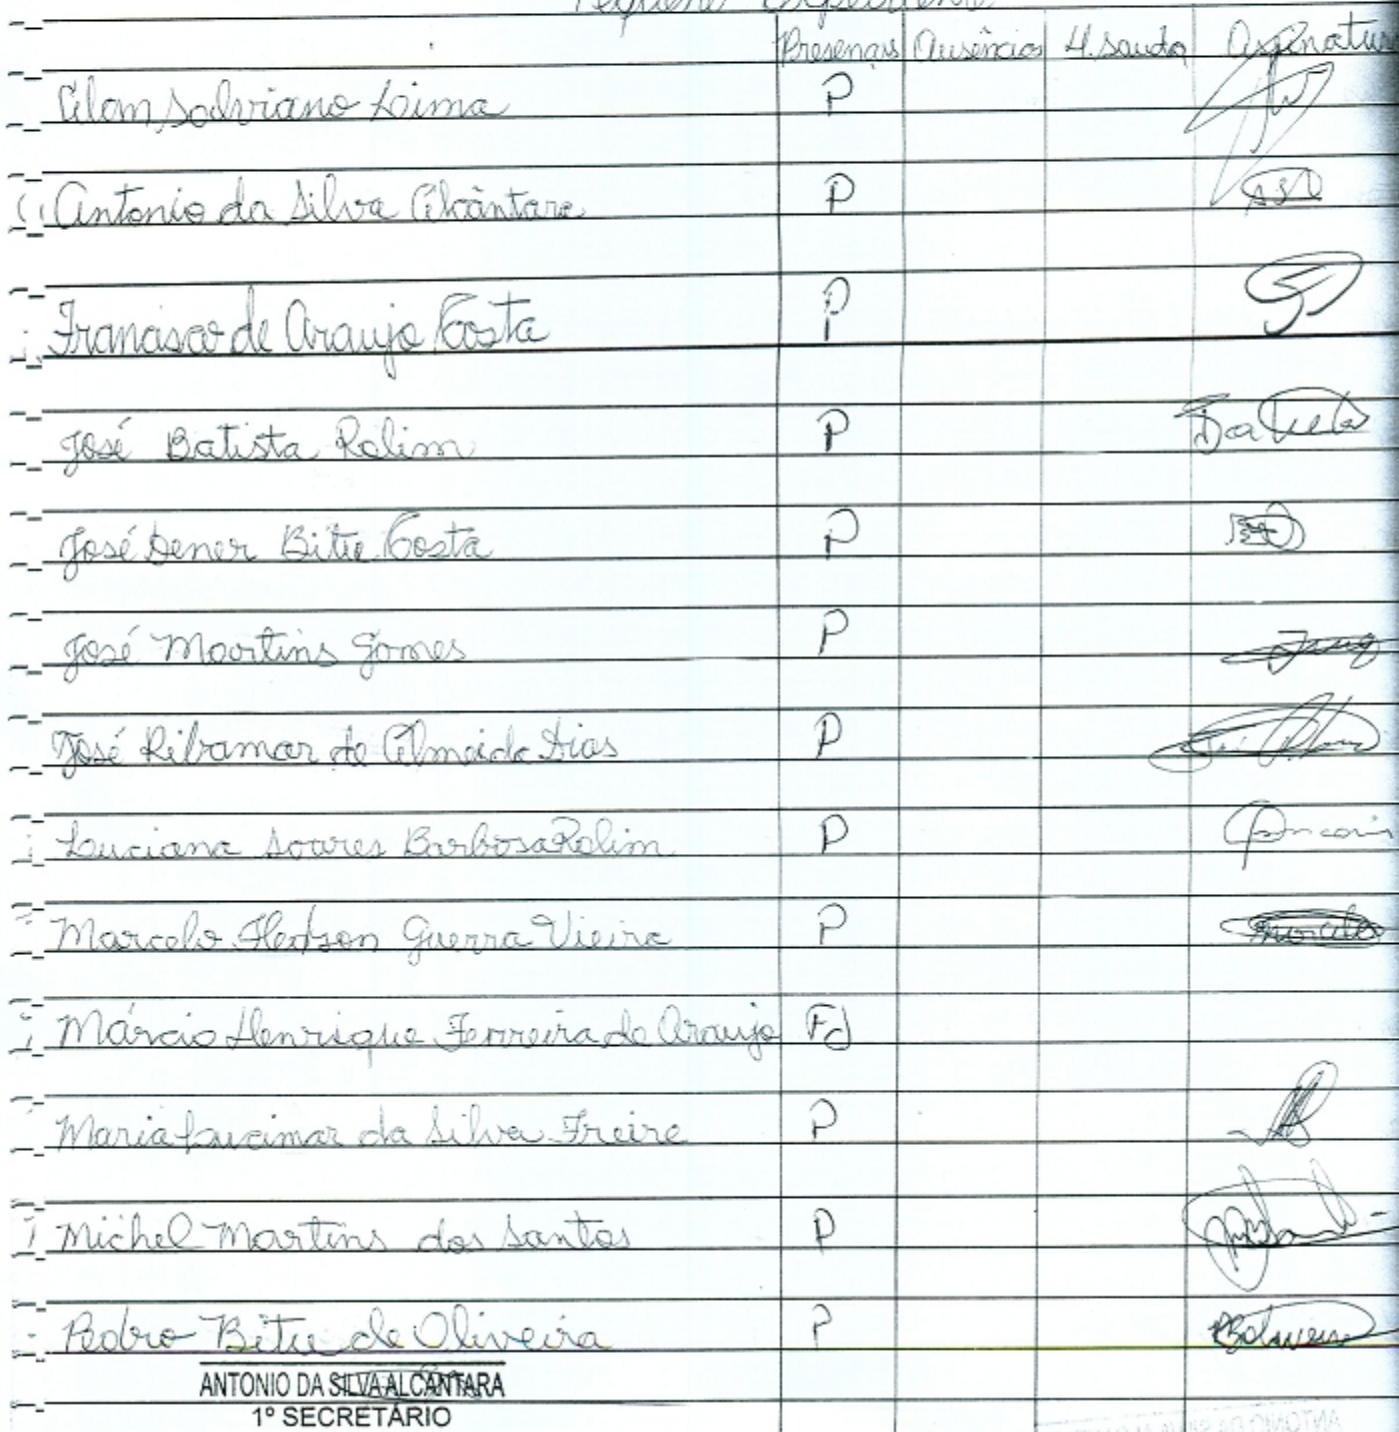 Pequeno Expediente
Presenças Ausências H. saída Assinatura
Alan Salviano Lima P
Antonio da Silva Alcântara P
Francisco de Araujo Costa P
José Batista Rolim P Batista
José Dener Bitu Costa P
José Martins Gomes P
José Ribamar de Almeida Dias P
Luciana Soares Barbosa Rolim P
Marcelo Hedson Guerra Vieira P Marcelo
Márcio Henrique Ferreira de Araujo FJ
Maria Lucimar da Silva Freire P
Michel Martins dos Santos P
Pedro Bitu de Oliveira P
ANTONIO DA SILVA ALCÂNTARA
1º SECRETÁRIO